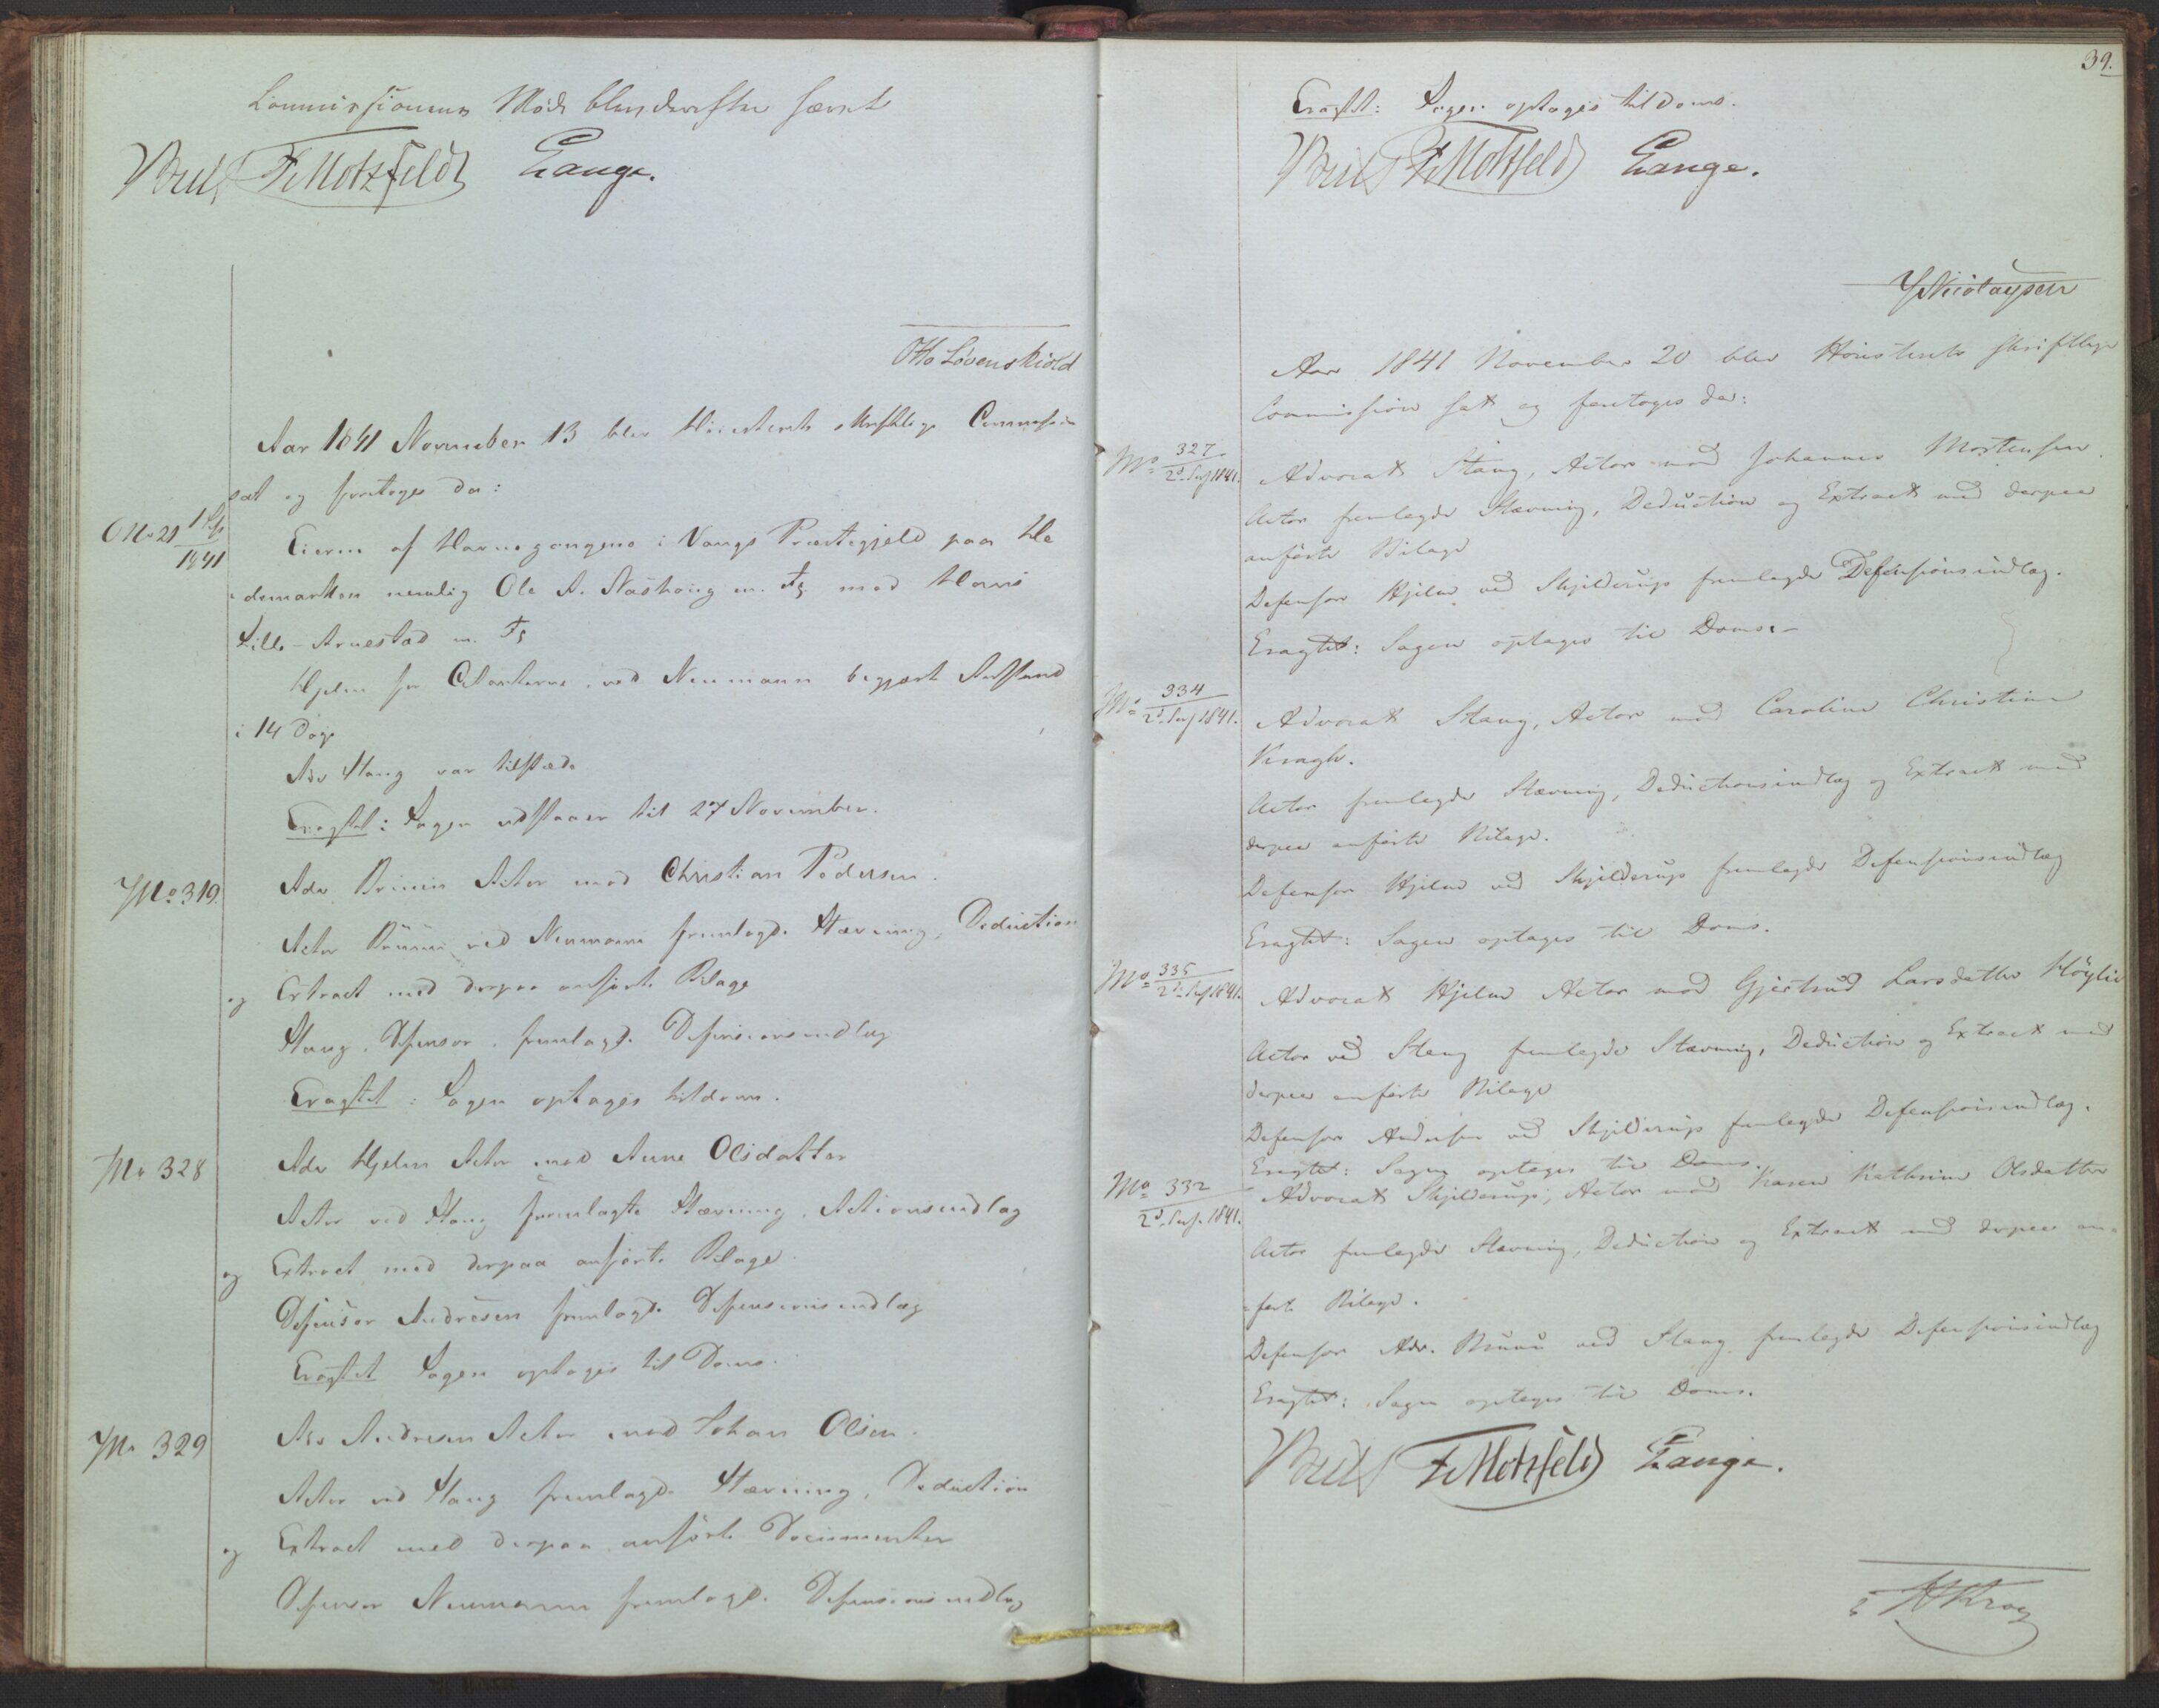 Commissionens Møde blev derefter hævet
Motzfeldt Lange.
Otto Løvenskiold
Aar 1841 November 13 blev Høiesterets skriftlige Commission
sat og foretoges da:
No 21 1 Ss 1841
Eierne af Havnegangene i Vangs Præstegjeld paa He
demarken nemlig Ole A. Nashoug m. Fl. mod Hans
Lille-Arnestad m. Fl
Hjelm for Citanterne ved Neumann begjært Udstand
i 14 Dage
Adv Stang var tilstæde
Eragtet: Sagen udstaaer til 27 November.
No 319.
Adv Bruun Actor mod Christian Pedersen.
Actor Bruun ved Neumann fremlagde Stævning, Deduction
og Extract med derpaa anførte Bilage
Stang, Defensor, fremlagde Defensionsindlæg
Eragtet: Sagen optages til doms.
No 328
Adv Hjelm Actor mod Anne Olsdatter
Actor ved Stang fremlagte Stævning, Actionsindlæg
og Extract med derpaa anførte Bilage.
Defensor Andresen fremlagde Defensionsindlæg
Eragtet Sagen optages til Doms.
No 329
Adv Andresen Actor mod Johan Olsen.
Actor ved Stang fremlagde Stævning, Deduction
og Extract med derpaa anførte Documenter
Defensor Neumann fremlagde Defensionsindlæg
39.
Eragtet: Sagen optages til doms.
Motzfeldt Lange.
Nicolaysen
Aar 1841 November 20 blev Høiesterets skriftlige
Commission sat og foretoges da:
No 327 2d Ses 1841.
Advocat Stang, Actor mod Johannes Mortensen.
Actor fremlagde Stævning, Deduction og Extract med derpaa
anførte Bilage
Defensor Hjelm ved Skjelderup fremlagde Defensionsindlæg.
Eragtet: Sagen optages til Doms.-
No 334 2d Ses 1841.
Advocat Stang, Actor mod Caroline Christine
Kragh.
Actor fremlagde Stævning, Deductionsindlæg og Extract med
derpaa anførte Bilage.
Defensor Hjelm ved Skjelderup fremlagde Defensionsindlæg
Eragtet: Sagen optages til Doms.
No 335 2d Ses 1841.
Advocat Hjelm Actor mod Gjertrud Larsdatter Høglie
Actor ved Stang fremlagde Stævning, Deduction og Extract med
derpaa anførte Bilage
Defensor Andresen ved Skjelderup fremlagde Defensionsindlæg.
Eragtet: Sagen optages til Doms.
No 332 2d Ses. 1841.
Advocat Skjelderup, Actor mod Karen Kathrine Olsdatter
Actor fremlagde Stævning, Deduction og Extract med derpaa an-
førte Bilage.
Defensor Adv. Bruun ved Stang fremlagde Defensionsindlæg
Eragtet: Sagen optages til Doms.
Motzfeldt Lange.
Krog